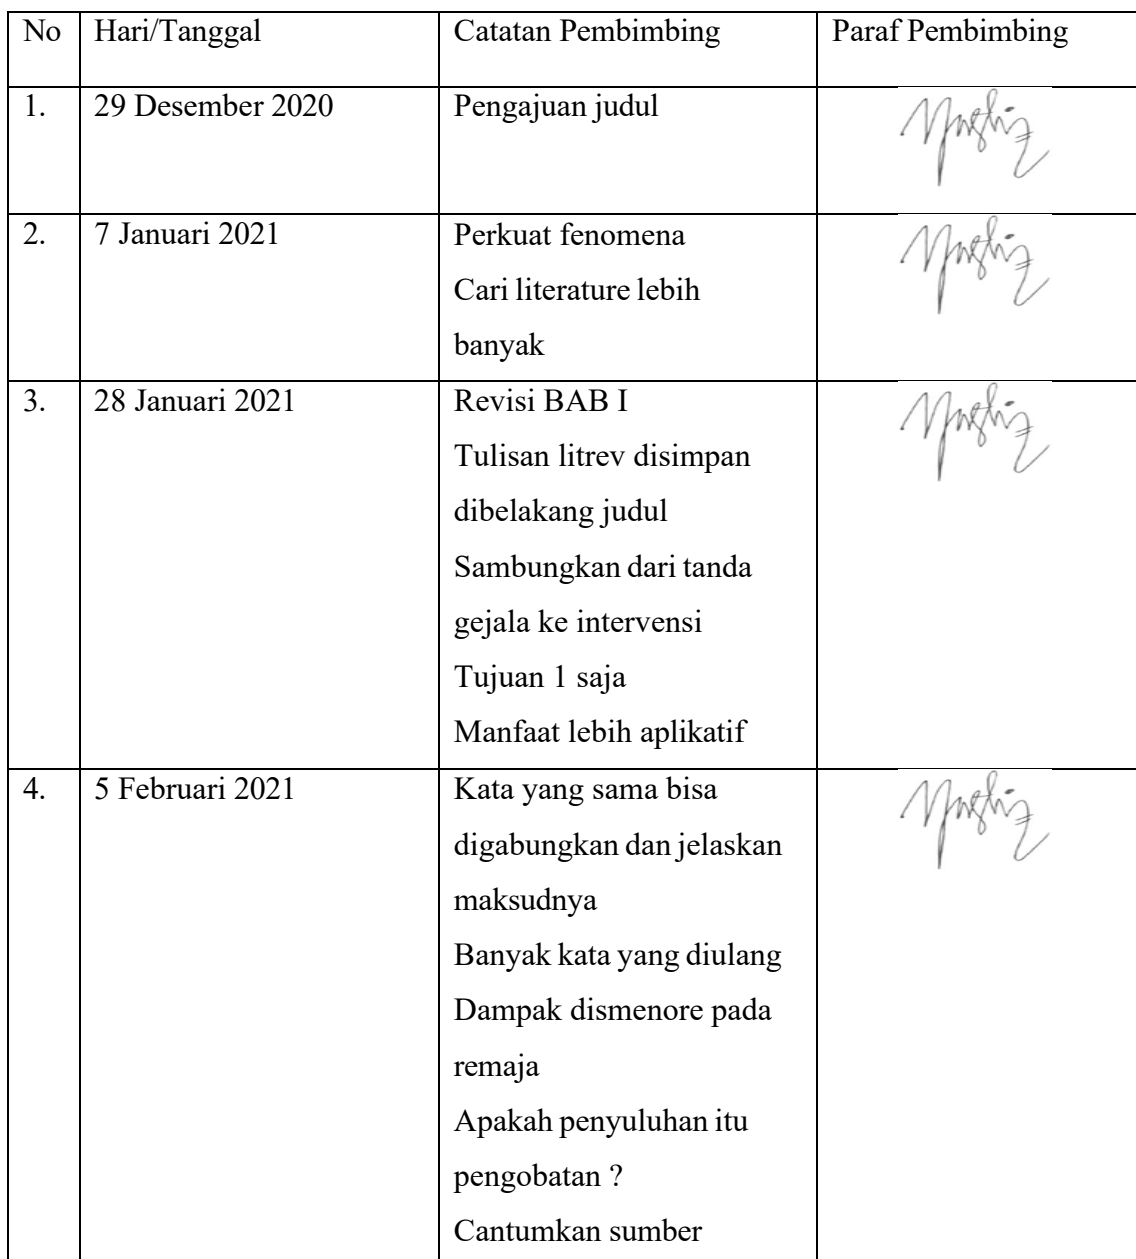 No Hari/Tanggal Catatan Pembimbing Paraf Pembimbing
1. 29 Desember 2020 Pengajuan judul
2. 7 Januari 2021 Perkuat fenomena
Cari literature lebih
banyak
3. 28 Januari 2021 Revisi BAB I
Tulisan litrev disimpan
dibelakang judul
Sambungkan dari tanda
gejala ke intervensi
Tujuan 1 saja
Manfaat lebih aplikatif
4. 5 Februari 2021 Kata yang sama bisa
digabungkan dan jelaskan
maksudnya
Banyak kata yang diulang
Dampak dismenore pada
remaja
Apakah penyuluhan itu
pengobatan ?
Cantumkan sumber